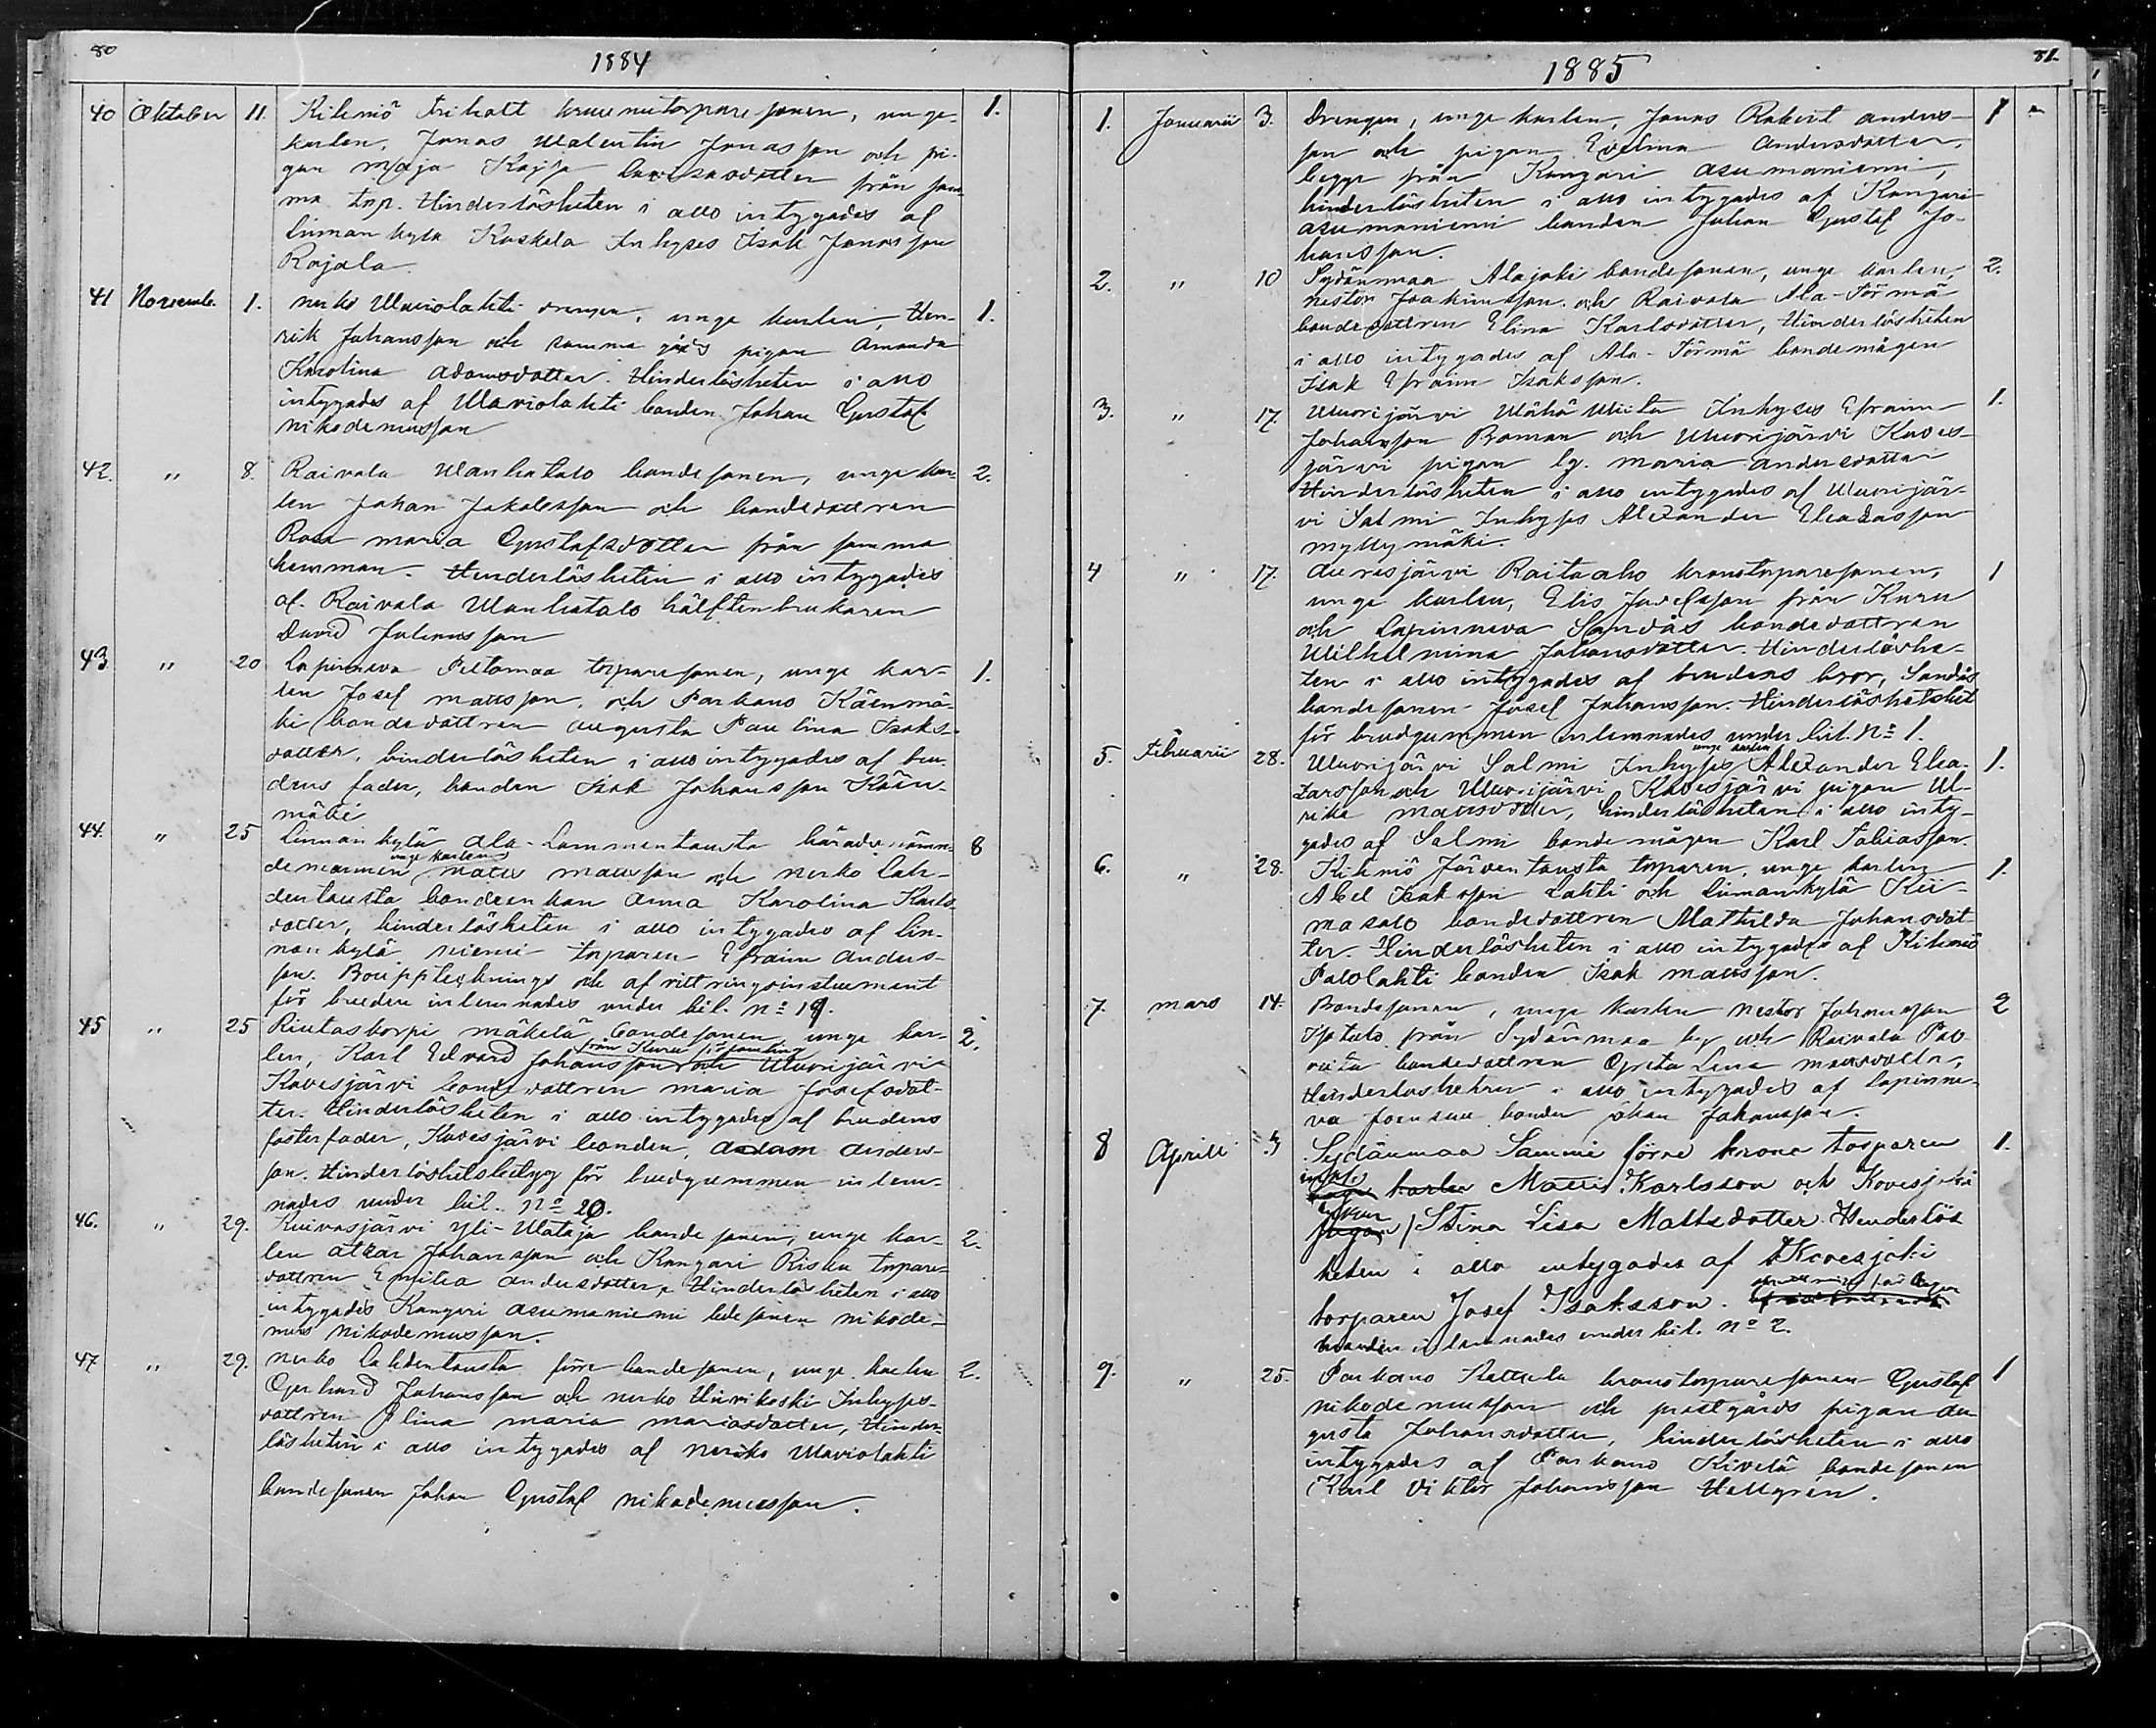 80
1884
40 Oktober 11. Kihniö Frihatt kronutorpare sonen, unge- 1.
karlen, Jonas Walentin Jonasson och pi-
gan Maja Kajsa från sam-
ma torp. Hinderlösheten i allo intygades af
Linnankylä Koskela Inhyses Isak Jonasson
Rajala
41 Novemb. 1. Nerko Waviolahti drengen, unge karlen, Hen- 1.
rik Johansson och samma gårds pigan Amanda
Karolina Adamsdotter. Hinderlösheten i allo
intygades af Waviolahti bonden Johan Gustaf
Nikodemusson
42. " 8. Raivala Wanhatalo bondesonen, unge kar- 2.
len Johan Jakobsson och bondedottren
Rosa Maria Gustafsdotter från samma
hemman. Hinderlösheten i allo intygades
af. Raivala Wanhatalo hälftenbrukaren
David Johansson
43. " 20 Lapinneva Peltomaa torparesonen, unge kar- 1.
len Josef Mattsson, och Parkano Käenmä-
ki bondedottren Augusta Paulina Isaks-
dotter, hinderlösheten i allo intygades af bru-
dens fader, bonden Isak Johansson Käen-
mäki
44. " 25 Linnankylä Ala-Lammentausta häradsnämn- 8
demannen unge karlen Matts Mattsson och Nerko Lah-
dentausta bondeenkan Anna Karolina Karls-
dotter, hinderlösheten i allo intygades af Lin-
nankylä Niemi torparen Efraim Anders-
son. Boupptecknings och afvittringsinstrument
för bruden inlemnades under bil. No 19.
45 " 25 Riutaskorpi Mäkelä bondesonen unge kar- 2.
från Kuru församling
len, Karl Edvard Johansson och Wuorijärvi
Kovesjärvi bondedottren Maria Josefsdot-
ter. Hinderlösheten i allo intygades af brudens
fosterfader, Kovesjärvi bonden, Adam Anders-
son. Hinderlöshetsbetyg för brudgummen inlem-
nades under bil. No 20.
46. " 29. Kuivasjärvi Yli-Wataja bonde sonen, unge kar- 2.
len Johansson och Kangari Risku torpare-
dottren Emilia Andersdotter, Hinderlösheten i allo
intygades Kangari Asumaniemi bdesonen Nikode-
mus Nikodemusson.
47 " 29. Nerko Lahdentausta förre bondesonen, unge karlen 2.
Gerhard Johansson och Nerko Hirvikoski Inhyses-
dottren Elina Maria Mariasdotter, Hinder-
lösheten i allo intygades af Nerko Waviolahti
bondesonen Johan Gustaf Nikodemusson.
81.
1885
1. Januarii 3. Drengen, unge karlen, Jonas Robert Anders- 1
son och pigan Evelina Andersdotter,
begge från Kangari Asumaniemi,
hinderlösheten i allo intygades af Kangari
Asumaniemi bonden Johan Gustaf Jo-
hansson.
2. " 10 Sydänmaa Alajoki bondesonen, unge karlen, 2.
Nestor Joakimsson och Raivala Ala-Törmä
bondedottren Elina Karlsdotter, Hinderlösheten
i allo intygades af Ala-Törmä bondemågen
Isak Efraim Isaksson.
3. " 17. Wuorijärvi Wähä Wiita Inhyses Efraim 1.
Johansson Roman och Wuorijärvi Koves-
järvi pigan Maria Andersdotter
Hinderlösheten i allo intygades af Wuorijär-
vi Salmi Inhyses Alexander Eleazarsson
Myllymäki.
4 " 17. Aurejärvi Raitaaho kronotorparesonen, 1
unge karlen, Elis Josefsson från Kuru
och Lapinneva Sandås bondedottren
Wilhelmina Johansdotter. Hinderlöshe-
ten i allo intygades af brudens bror, Sandås
bondesonen Josef Johansson. Hinderlöshetsbet
för brudgummen inlemnades under bil. No 1.
5. Februarii 28. Wuorijärvi Salmi Inhyses unge karlen Alexander Elea- 1.
zarsson och Wuorijärvi Kovesjärvi pigan Ul-
rika Mattsdotter, hinderlösheten i allo inty-
gades af Salmi bondemågen Karl Tobiasson.
6. " 28. Kihniö Järventausta torparen, unge karlen 1.
Abel Isaksson Lahti och Linnankylä Kii-
masalo bondedottren Mathilda Johansdot-
ter. Hinderlösheten i allo intygades af Kihniö
Palolahti bonden Isak Mattsson.
7. Mars 14. Bondesonen, unge karlen Nestor Johansson 2
Isotalo från Sydänmaa by och Raivala
bondedottren Greta Lena Mattsdotter,
Hinderlösheten i allo intygades af Lapinne-
va Joensuu bonden Johan Johansson.
8 Aprill 3 Sydänmaa Sammi förre krono torparen 1.
Matts Karlsson och Kovesjoki
Stina Lisa Mattsdotter. Hinderlös
heten i allo intygades af Kovesjoki
torparen Josef Isaksson.
inlemnades under bil. No 2.
9. " 25. Parkano Kattula kronotorparesonen Gustaf 1
Nikodemusson och prestgårds pigan Au-
gusta Johansdotter, hinderlösheten i allo
intygades af Parkano Kivelä bondesonen
Karl Viktor Johansson Hellgrén.